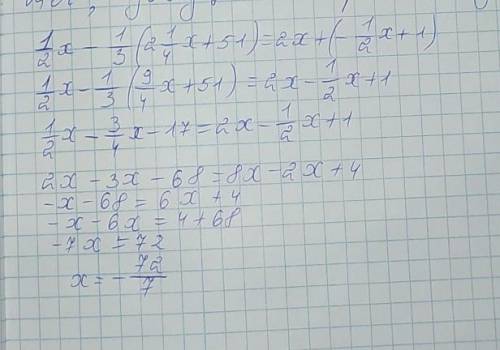 1/2 x - 1/3 (2 1/4 x + 51) = 2x + (-1/2 x + 1)
1/2 x - 1/3 (9/4 x + 51) = 2x - 1/2 x + 1
1/2 x - 3/4 x - 17 = 2x - 1/2 x + 1
2x - 3x - 68 = 8x - 2x + 4
-x - 68 = 6x + 4
-x - 6x = 4 + 68
-7x = 72
x = - 72/7